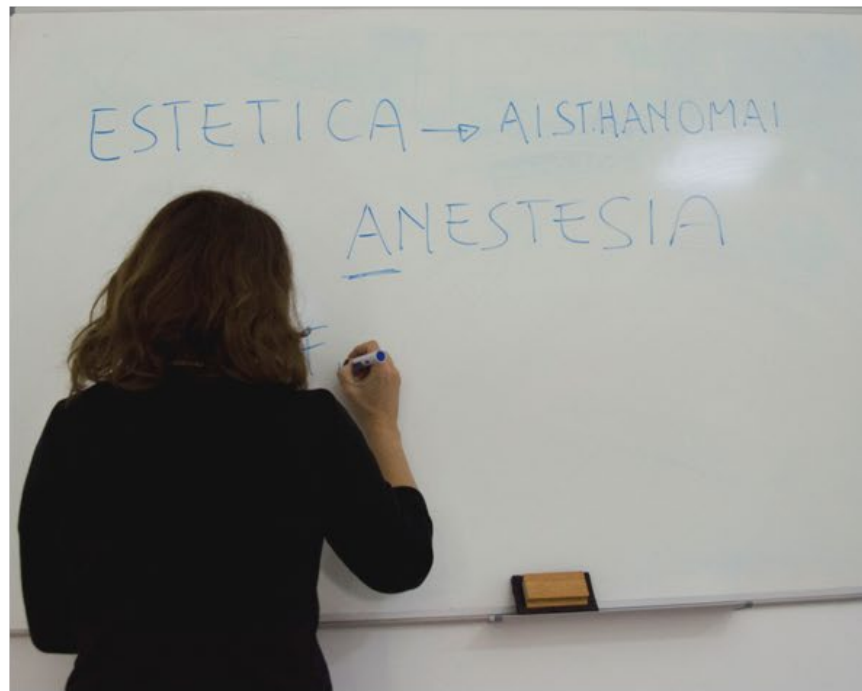 ESTETICA → AISTHANOMAI
ANESTESIA